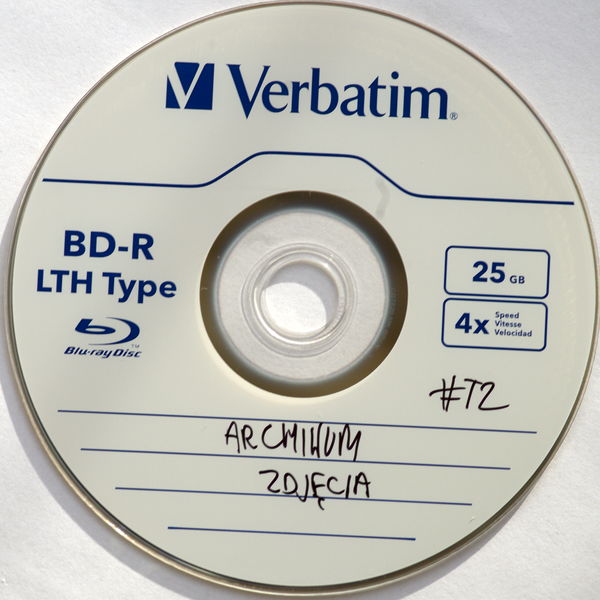 Verbatim®
BD-R
LTH Type
Blu-ray Disc™
25 GB
4x Speed
Vitesse
Velocidad
#T2
ARCHIWUM
ZDJĘCIA